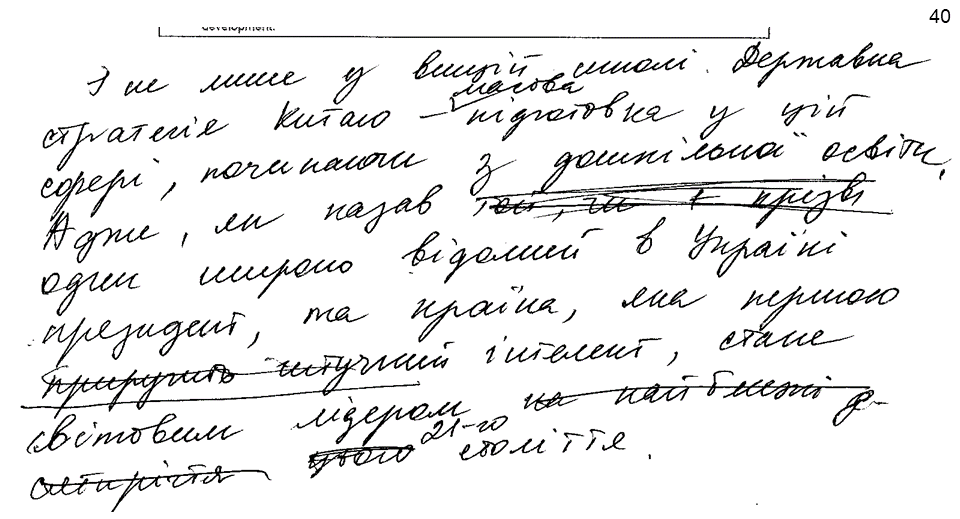 40
development.
І не лише у вищій школі. Державна
масова
стратегія Китаю – підготовка у цій
сфері, починаючи з дошкільної освіти.
Адже, як казав
один широко відомий в Україні
президент, та країна, яка першою
приручить штучний інтелект, стане
світовим лідером на найближчі
21-го
цього століття.